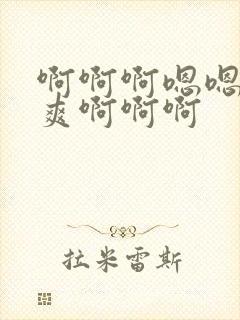 啊啊啊嗯嗯
爽啊啊啊
拉米雷斯